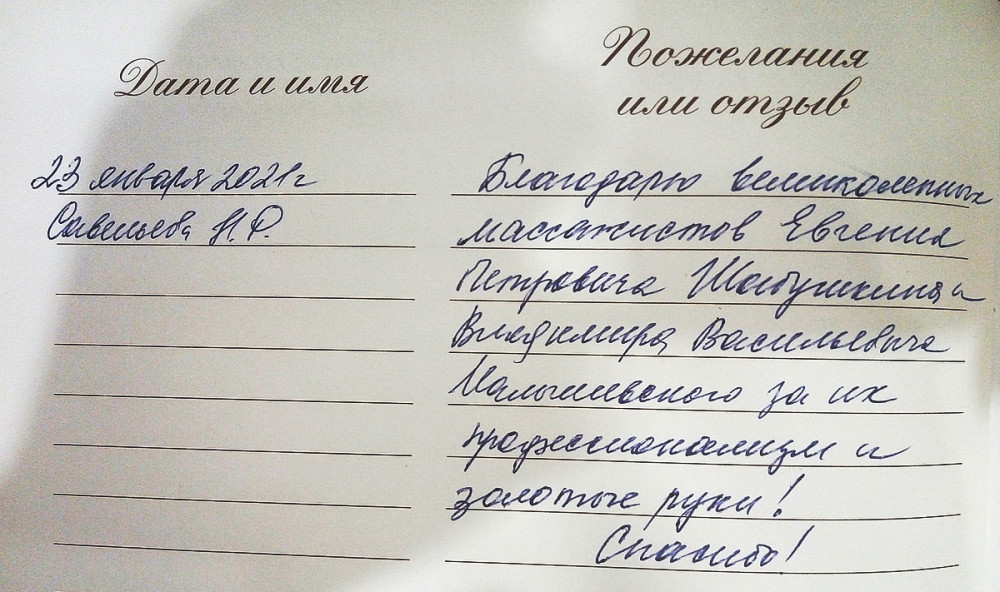 Дата и имя
Пожелания
или отзыв
23 января 2021г
Савельева Н.Ф.
Благодарю великолепных
массажистов Евгения
Петровича Шабушкина и
Владимира Васильевича
Малышевского за их
профессионализм и
золотые руки!
Спасибо!